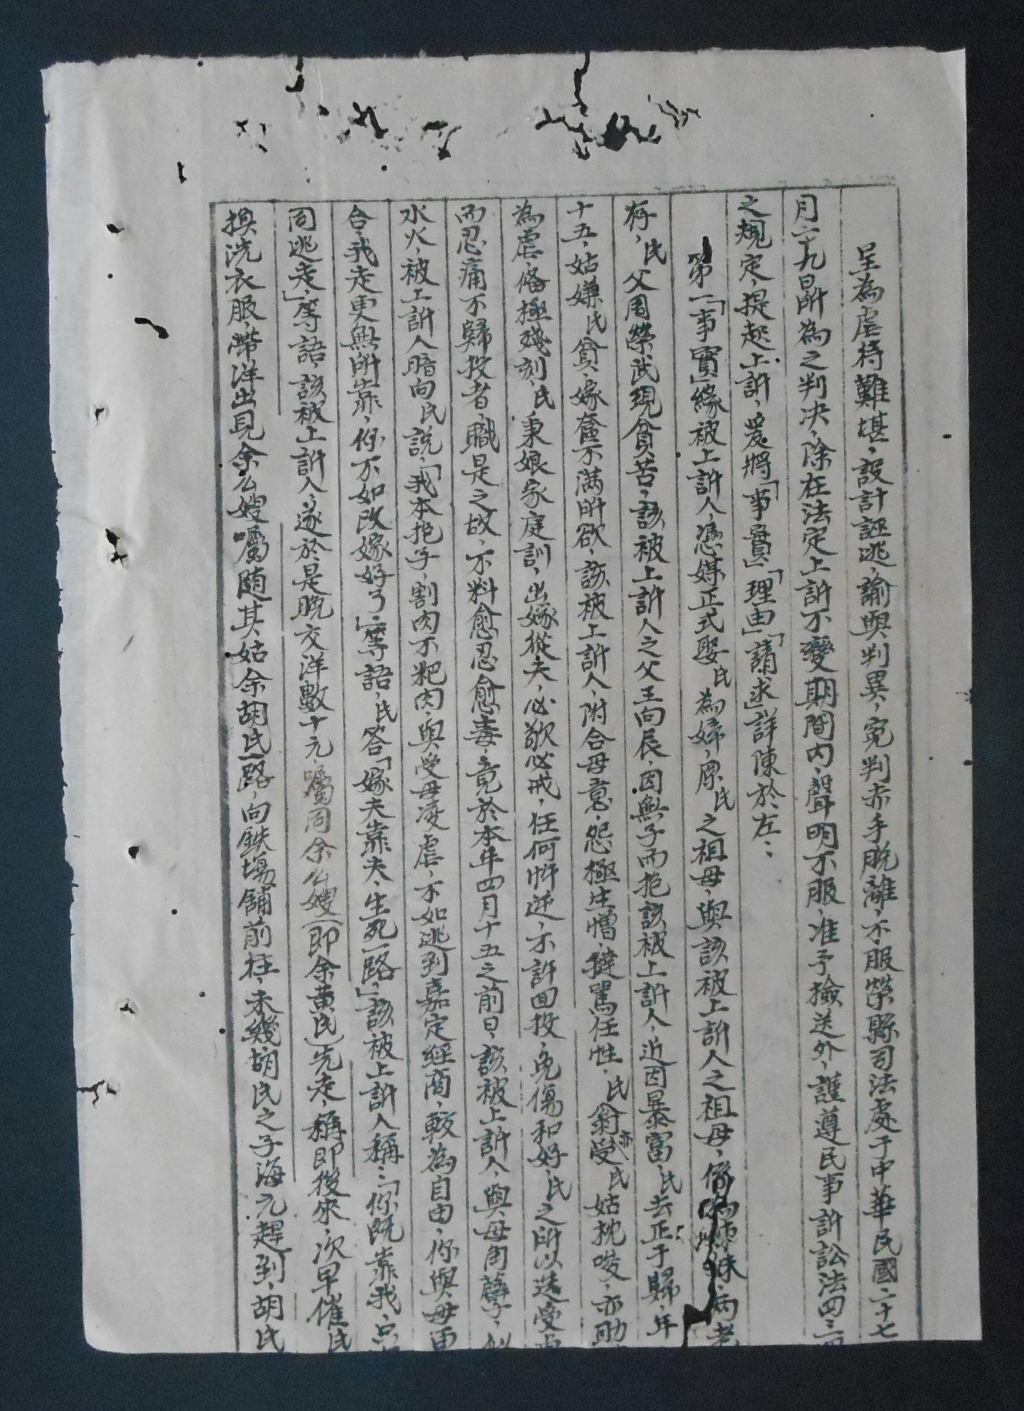 呈為虐待難堪，設計誣逃，諭與判異，冤判赤手脫離，不服榮縣司法處于中華民國二十七
月二十九日所為之判决，除在法定上訴不變期間內，聲明不服，准予檢送外，謹遵民事訴訟法四三
之規定，提起上訴，爰將「事實」「理由」「請求」詳陳於左：
第一「事實」緣被上訴人憑媒正式娶民為婦，原民之祖母，與該被上訴人之祖母，係妹，兩老
存，民父周榮武現貧苦，該被上訴人之父王向辰，因無子而抱該被上訴人，近因暴富，民去正于歸，年
十五，姑嫌民貧，嫁奩不滿所欲，該被上訴人，附合母意，怨極生憎，撻罵任性，民翁亦受民姑枕唆，亦助
為虐，俻極殘刻，民秉娘家庭訓，出嫁從夫，必敬必戒，任何忤逆，不許回投，免傷和好，民之所以迭受虐
而忍痛不歸投者，職是之故，不料愈忍愈毒，竟於本年四月十五之前日，該被上訴人，與母角孽，似
水火，被上訴人暗向民說，「我本抱子，割肉不粑肉，與受母凌虐，不如逃到嘉定經商，較為自由，你與母更
合，我走更無所靠，你不如改嫁好了」等語，民答「嫁夫靠夫，生死一路」，該被上訴人稱：「你既靠我，只
同逃走」等語，該被上訴人，遂於是晚交洋數十元，囑同余么嫂（即余黃氏）先走，稱即後來，次早催民
換洗衣服，帶洋出見余么嫂，囑随其姑余胡氏一路，向鉄塲鋪前往，未幾，胡氏之子海元趕到，胡氏